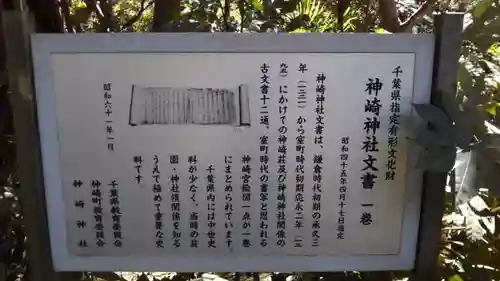 千葉県指定有形文化財
神崎神社文書 一巻
昭和四十五年四月十七日指定
神崎神社文書は、鎌倉時代初期の承久三
年(一二二一)から室町時代初期応永二年(一三
九五)にかけての神崎荘及び神崎神社関係の
古文書十二通、室町時代の書写と思われる
神崎宮絵図一点が一巻
にまとめられています。
千葉県内には中世史
料が少なく、当時の荘
園・神社領関係を知る
うえで極めて重要な史
料です。
昭和六十一年一月
千葉県教育委員会
神崎町教育委員会
神崎神社